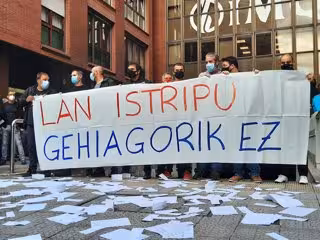 LAN ISTRIPU
GEHIAGORIK EZ